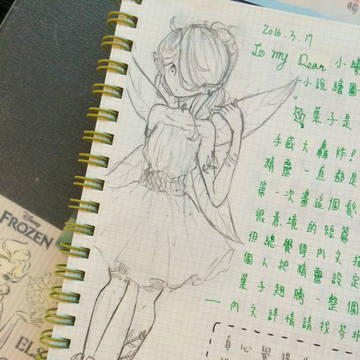 2016.3.17
To my Dear 小曦
小說繪圖
葉子是
手感大轟炸!
精靈一直都是
第一次畫這個髮
很意境的短篇
但總覺得內文描
個人把精靈設定
葉子翅膀,整個
—內文詳情請找芬
Disney
FROZEN
EL